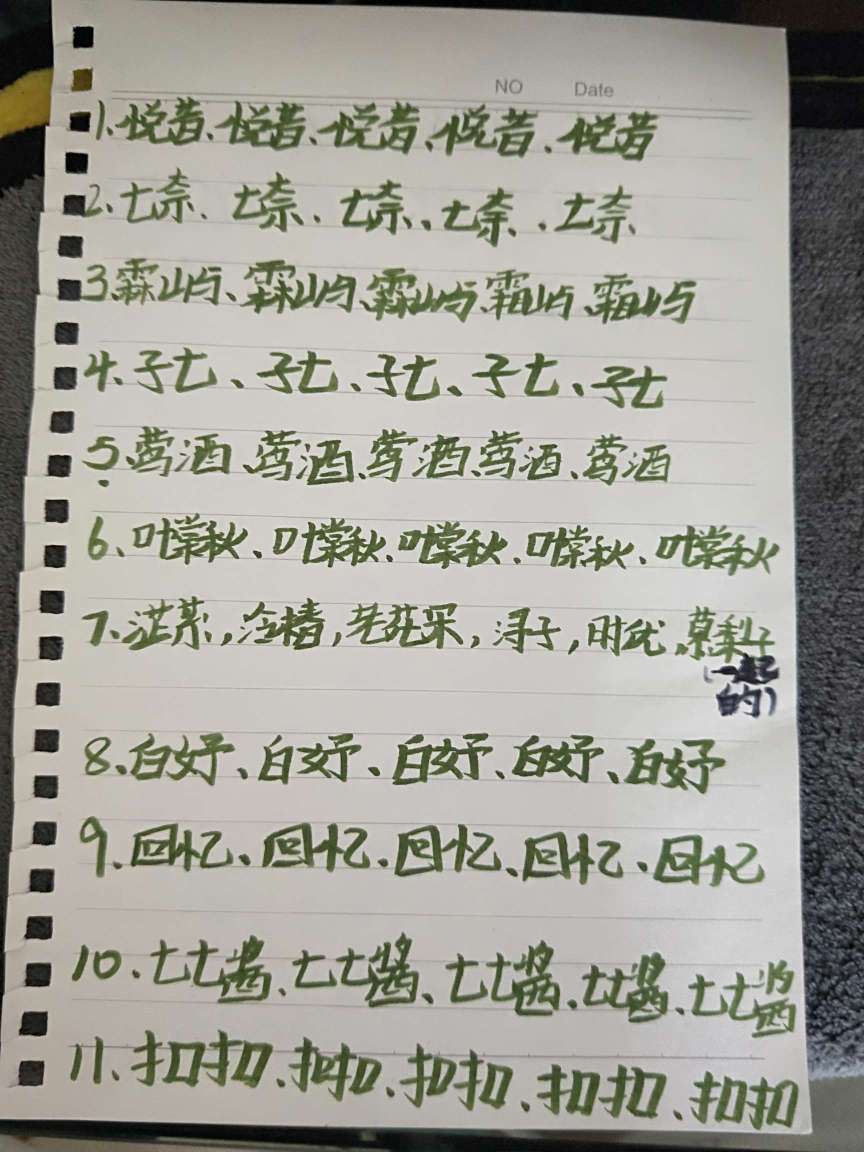 NO Date
1.悦昔、悦昔、悦昔、悦昔、悦昔
2.七奈、七奈、七奈、七奈、七奈
3.霖屿、霖屿、霖屿、霜屿、霜屿
4、子七、子七、子七、子七、子七
5、莺酒、莺酒、莺酒、莺酒、莺酒
6、叶棠秋、叶棠秋、叶棠秋、叶棠秋、叶棠秋
7、茫茶,冷椿,芜菀采,浔子,时优,慕梨子
(一起
的)
8、白妤、白妤、白妤、白妤、白妤
9、回忆、回忆、回忆、回忆、回忆
10、七七酱、七七酱、七七酱、七七酱、七七酱
11、扣扣、扣扣、扣扣、扣扣、扣扣